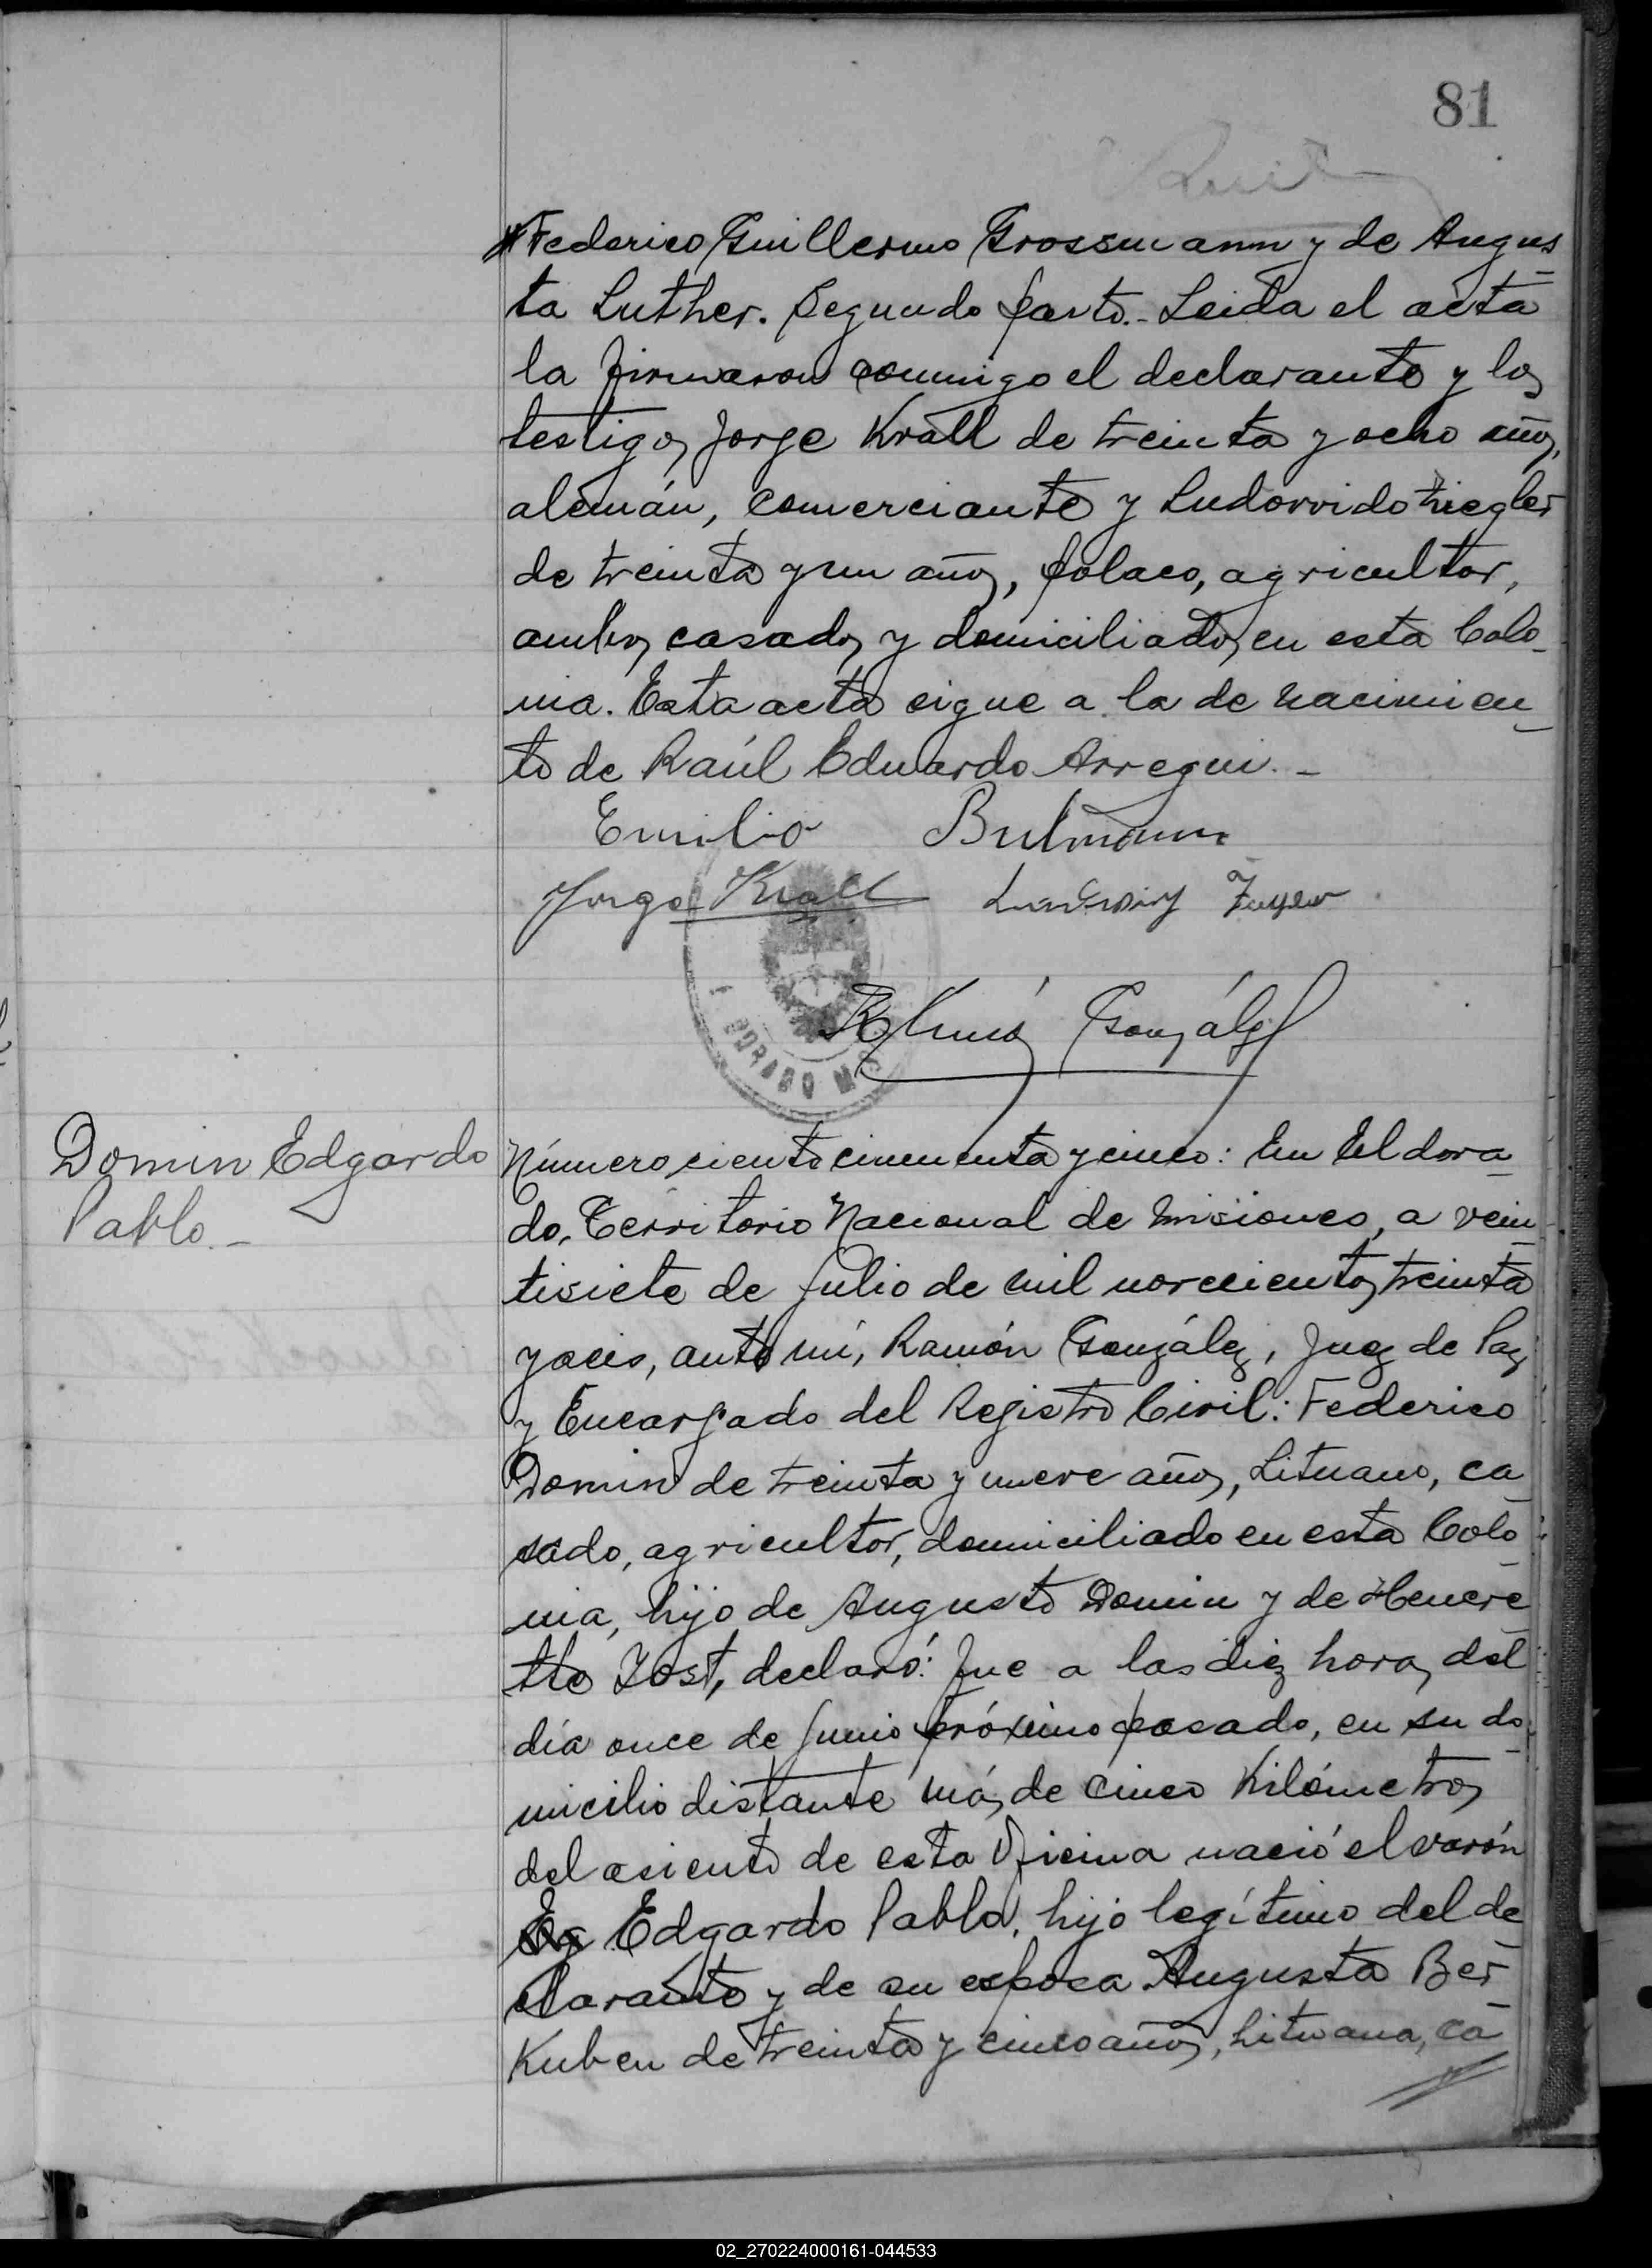 81
Federico Guillermo Grossmann y de Augus
ta Luther. Segundo parto.- Leida el acta
la firmaron conmigo el declarante y los
testigos Jorge Krall de treinta y ocho años,
alemán, comerciante y Ludovvido Ziegler
de treinta y un años, polaco, agricultor,
ambos casados y domiciliados en esta Colo
nia. Esta acta sigue a la de nacimien
to de Raúl Eduardo Arregui.-
Emilio Bulmann
Jorge Krall Ludwig
González
EL DORADO
Domin Edgardo
Pablo.-
Número ciento cincuenta y cinco: En Eldora
do, Territorio Nacional de Misiones, a vein
tisiete de Julio de mil novecientos treinta
y seis, ante mí, Ramón González, Juez de Paz
y Encargado del Registro Civil: Federico
Domin de treinta y nueve años, Lituano, ca
sado, agricultor, domiciliado en esta Colo
nia, hijo de Augusto Domin y de Henere
tte Jost, declaró: Que a las diez horas del
día once de Junio próximo pasado, en su do
micilio distante más de cinco Kilómetros
del asiento de esta Oficina nació el varón
Edgardo Pablo, hijo legítimo del de
clarante y de su esposa Augusta Ber
Kuben de treinta y cinco años, Lituana, ca
02_270224000161-044533